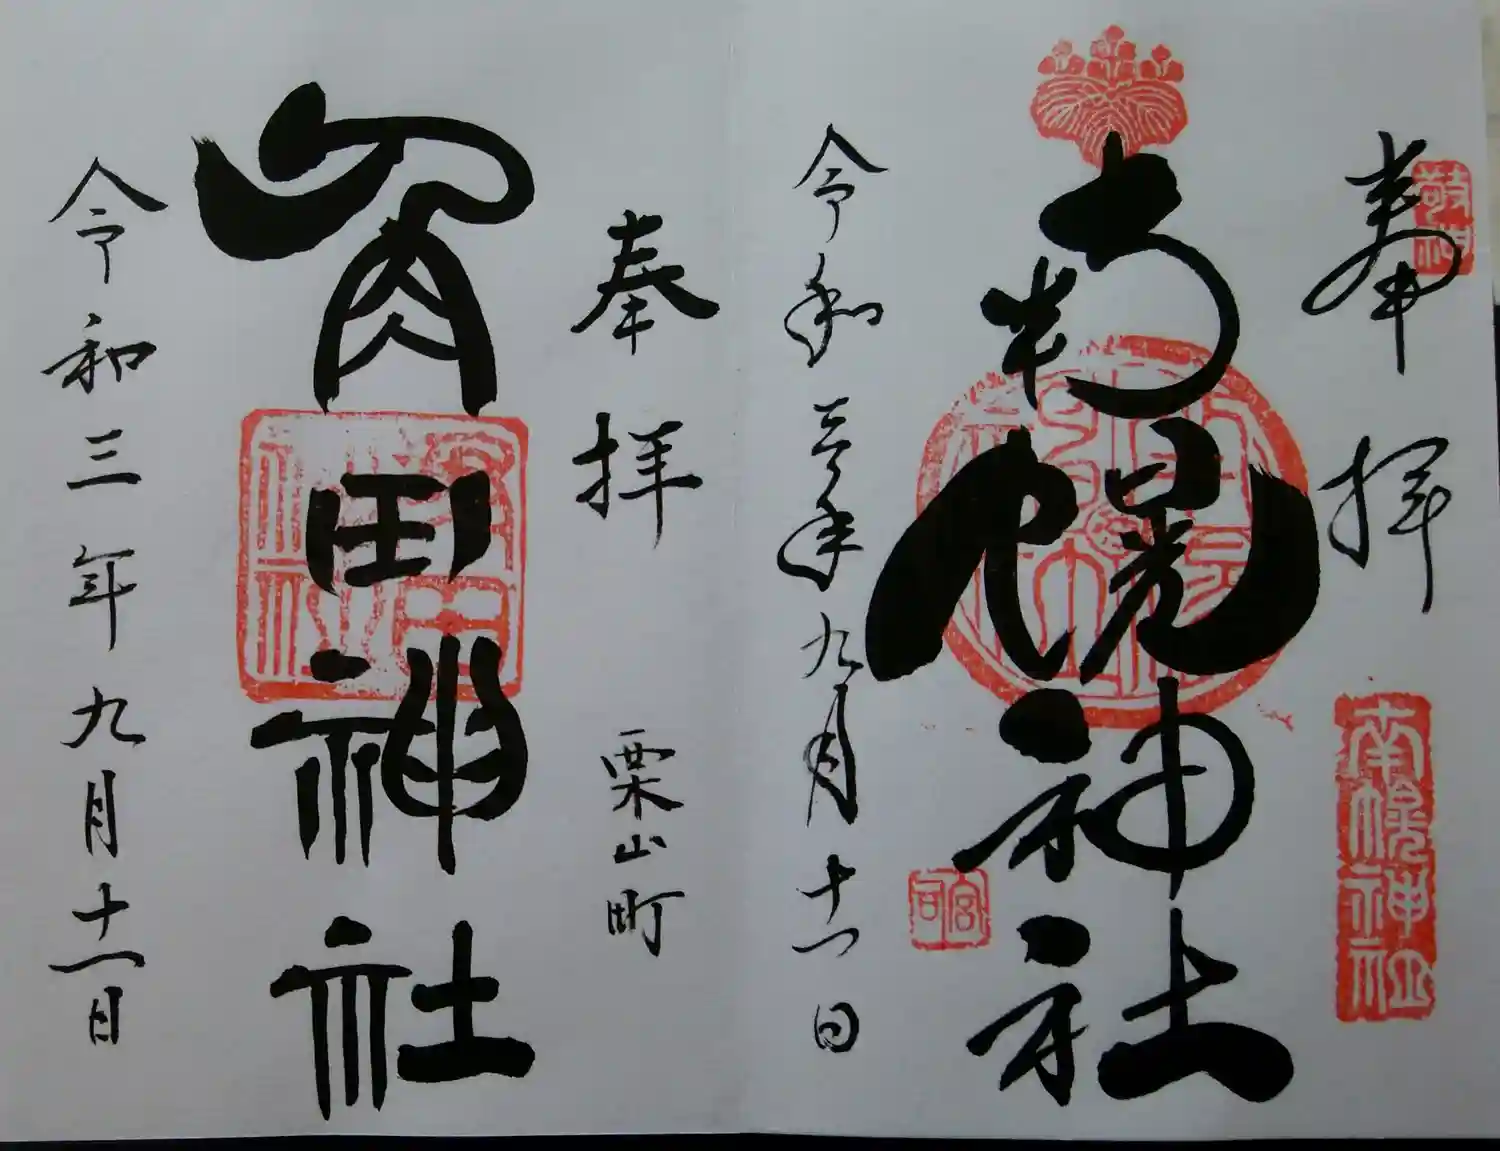 敬神
奉拝
南幌神社
南幌神社
令和三年九月十一日
宮司
奉拝
栗山町
角田神社
令和三年九月十一日